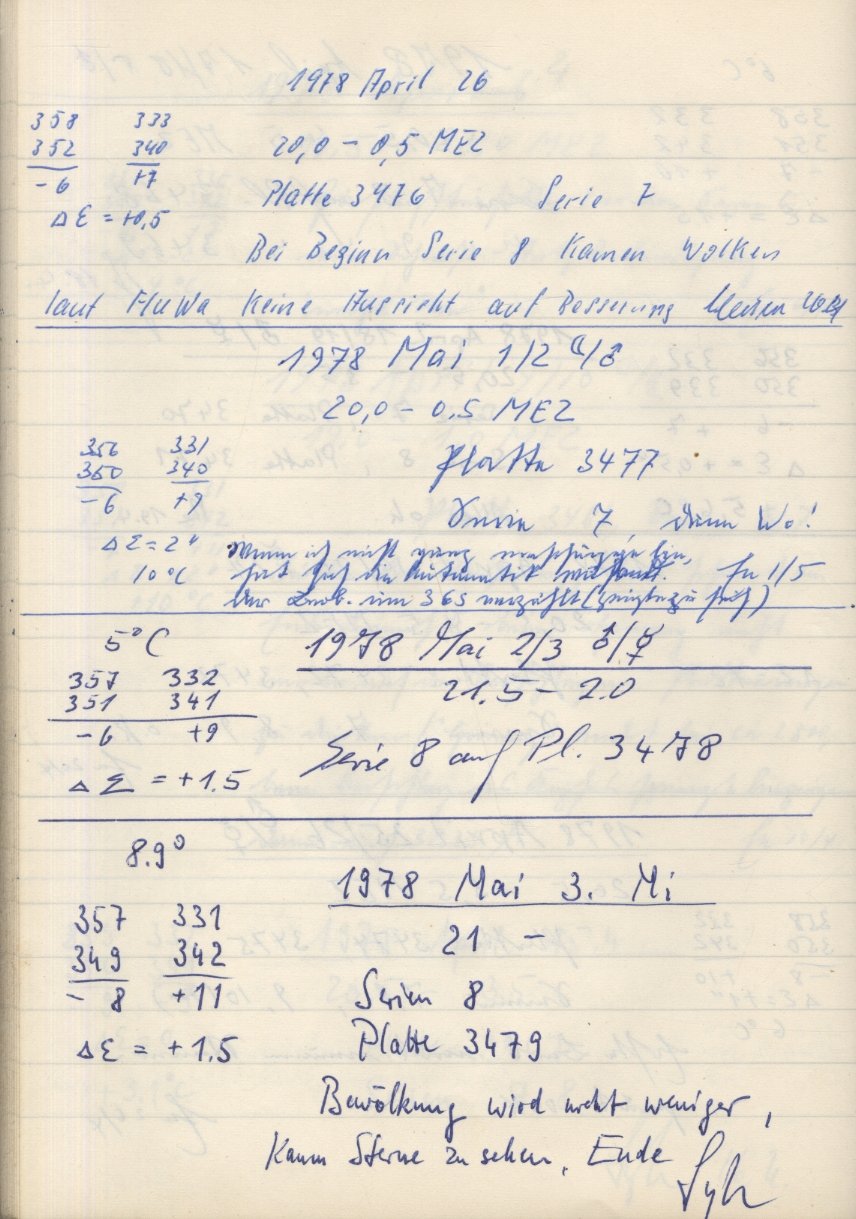 1978 April 26
358 333
352 340 20,0 – 0,5 MEZ
-6 +7
Platte 3476 Serie 7
Δ Ɛ = +0,5
Bei Beginn Serie 8 kamen Wolken
laut FluWa keine Aussicht auf Besserung
1978 Mai 1/2 ☾/♂
20,0 – 0.5 MEZ
356 331
350 340 Platte 3477
-6 +9
Serie 7, dann Wo!
Δ Σ = 2"
Wenn ich nicht ganz bin,
10°C hat sich die Automatik 1/5
der Beob. um 36s verzählt (zu früh)
5°C 1978 Mai 2/3 ♂/☿
357 332 21.5 – 2.0
351 341
-6 +9
Serie 8 auf Pl. 3478
Δ Σ = +1.5
8.9°
1978 Mai 3. Mi
357 331
349 342 21 –
-8 +11 Serien 8
Δ Ɛ = +1.5 Platte 3479
Bewölkung wird nicht weniger,
Kaum Sterne zu sehen, Ende